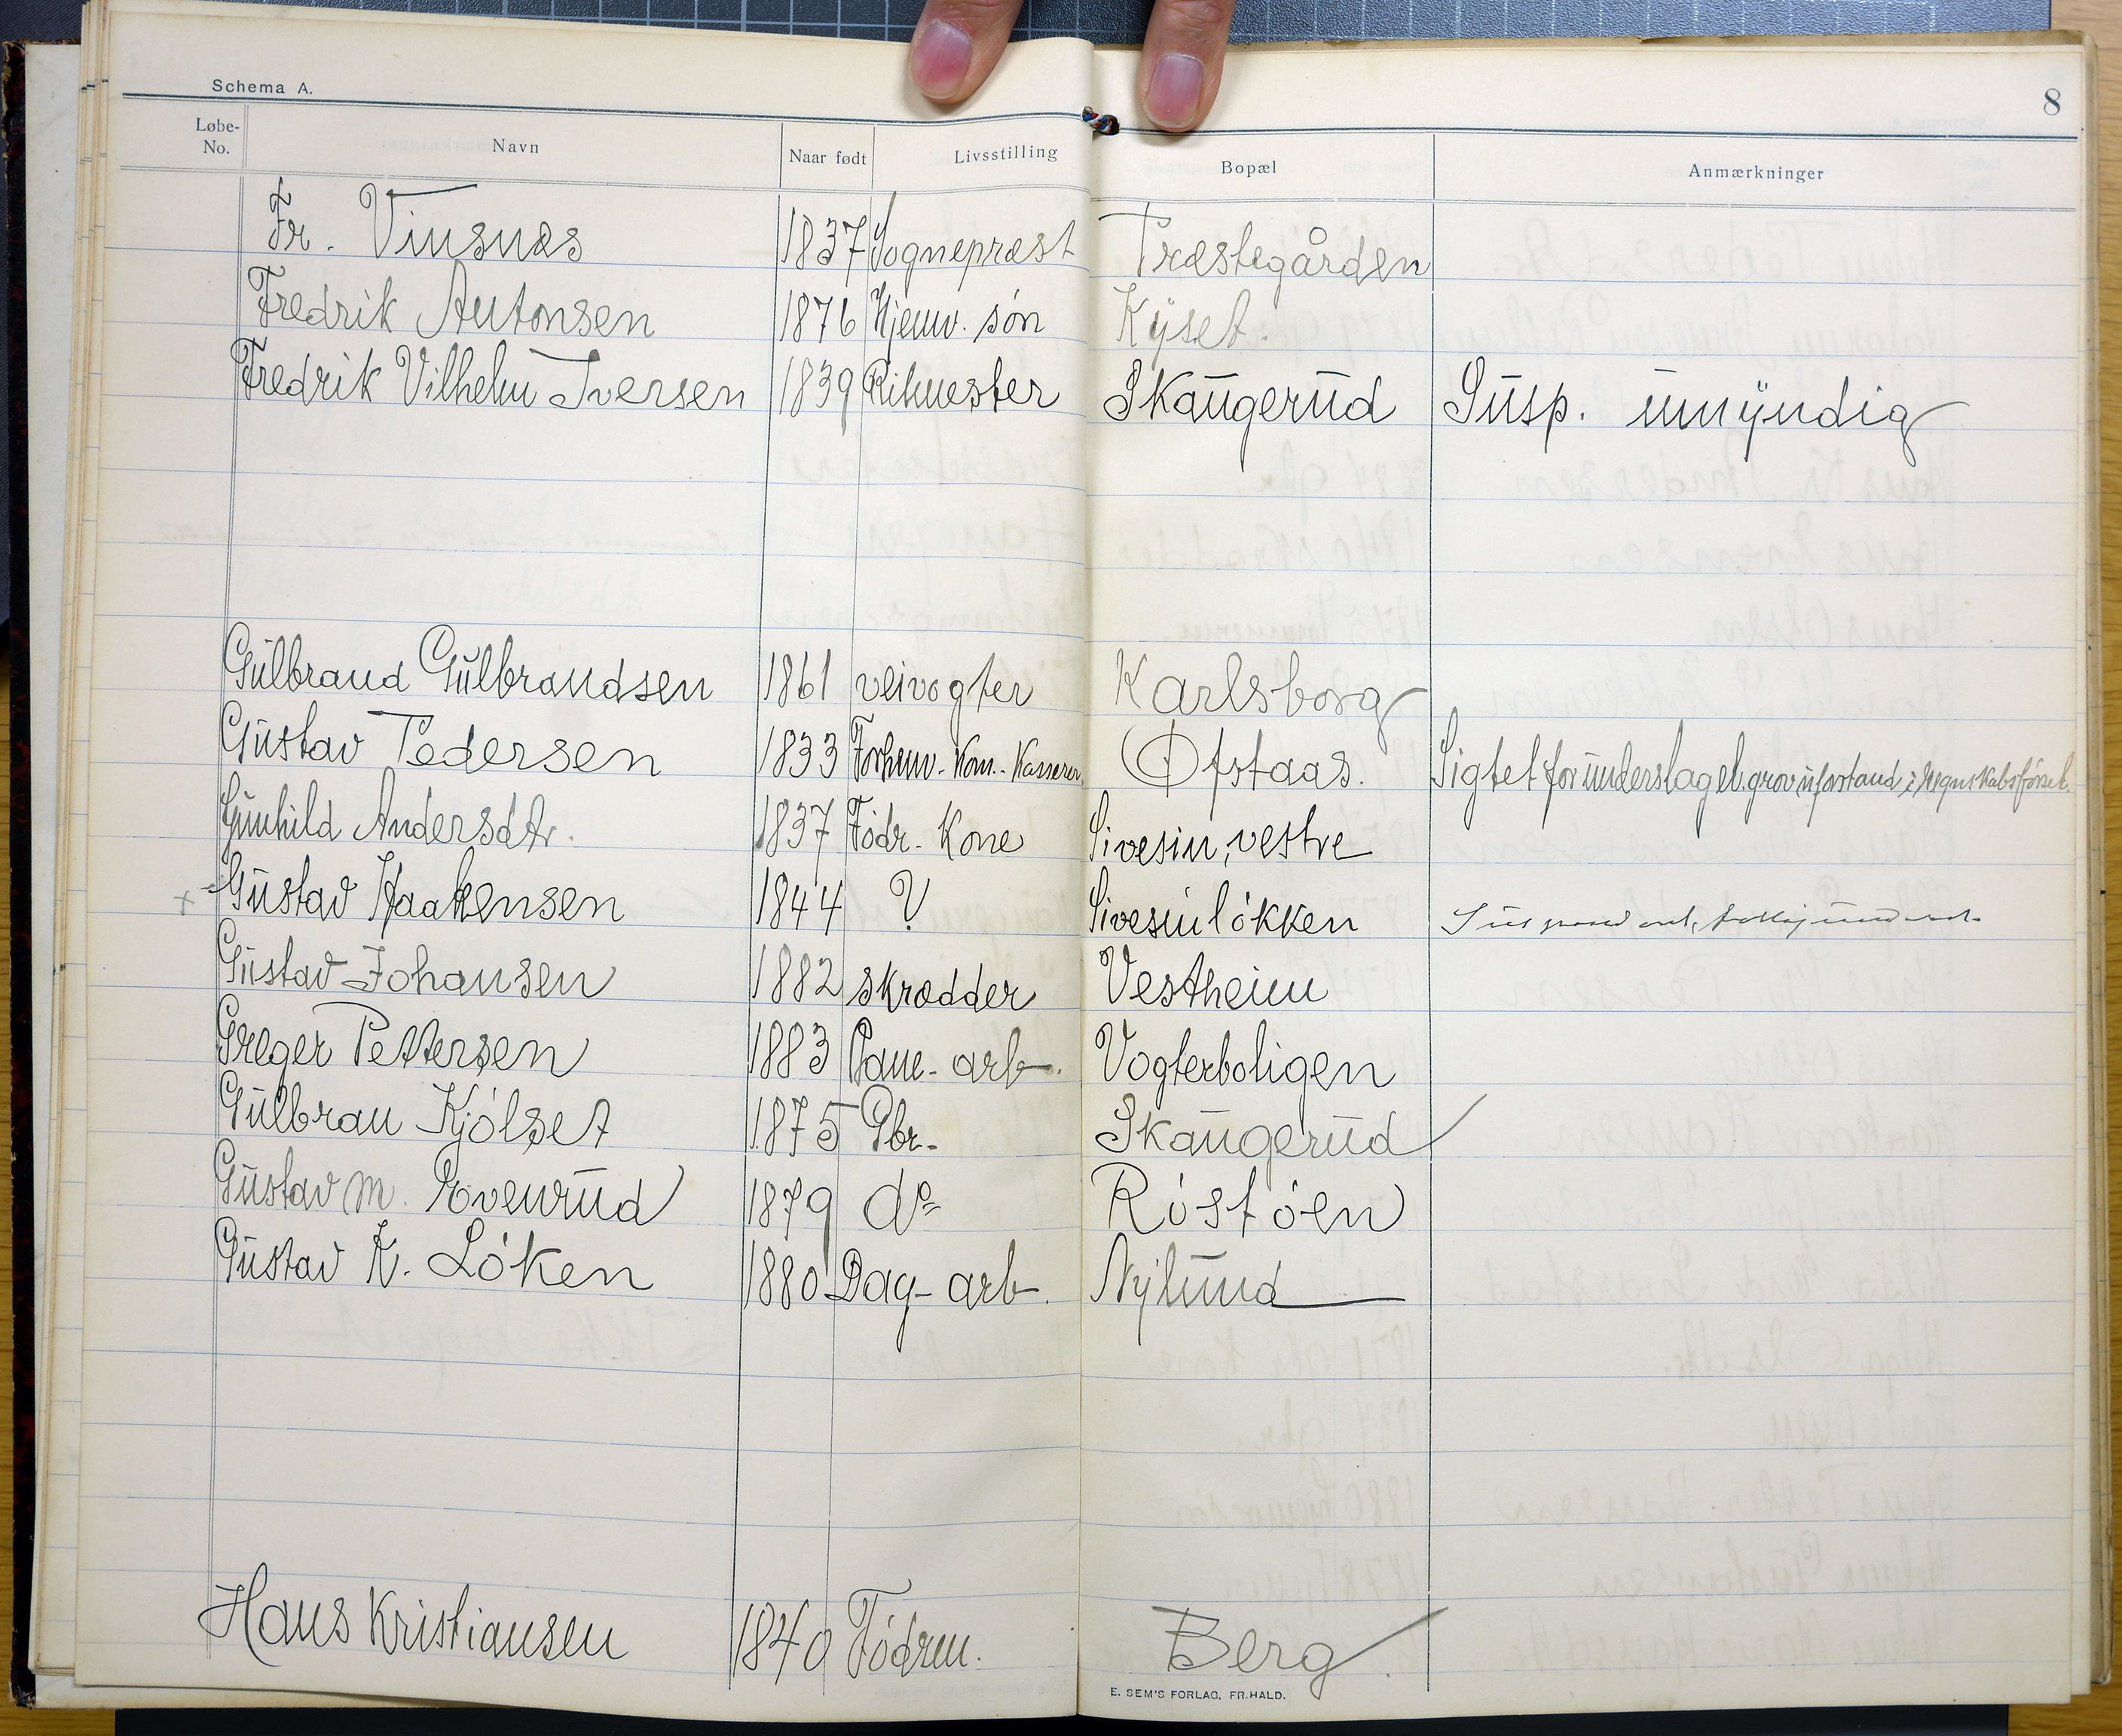 Schema A.
8
Løbe-No. Navn Naar født Livsstilling Bopæl Anmærkninger
Fr. Vinsnæs 1837 Sognepræst Præstegården
Fredrik Antonsen 1876 Hjemv. søn Kyset.
Fredrik Vilhelm Iversen 1839 Ritmester Skaugerud Susp. umyndig
Gulbrand Gulbrandsen 1861 veivogter Karlsborg
Gustav Pedersen 1833 Forhenv. Kom. Kasserer Ofstaas. Sigtet for underslag el. grov uforstand i Regnskabsførsel.
Gunhild Andersdtr. 1837 Födr. Kone Sivesin, vestre
x Gustav Haakensen 1844 ? Sivesinlökken
Gustav Johansen 1882 skrædder Vestheim
Greger Pettersen 1883 Bane-arb. Vogterboligen
Gulbran Kjölset 1875 Gbr. Skaugerud
Gustav M. Evenrud 1879 do Röstöen
Gustav K. Löken 1880 Dag-arb. Nylund
Hans Kristiansen 1840 Födrm. Berg
E. SEM'S FORLAG, FR.HALD.